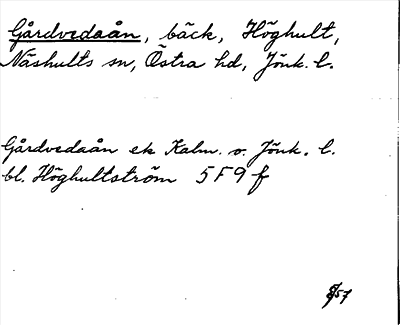 Gårdvedaån, bäck, Höghult,
Näshults sn, Östra hd, Jönk. l.
Gårdvedaån ek Kalm. o. Jönk. l.
bl. Höghultström 5F9f